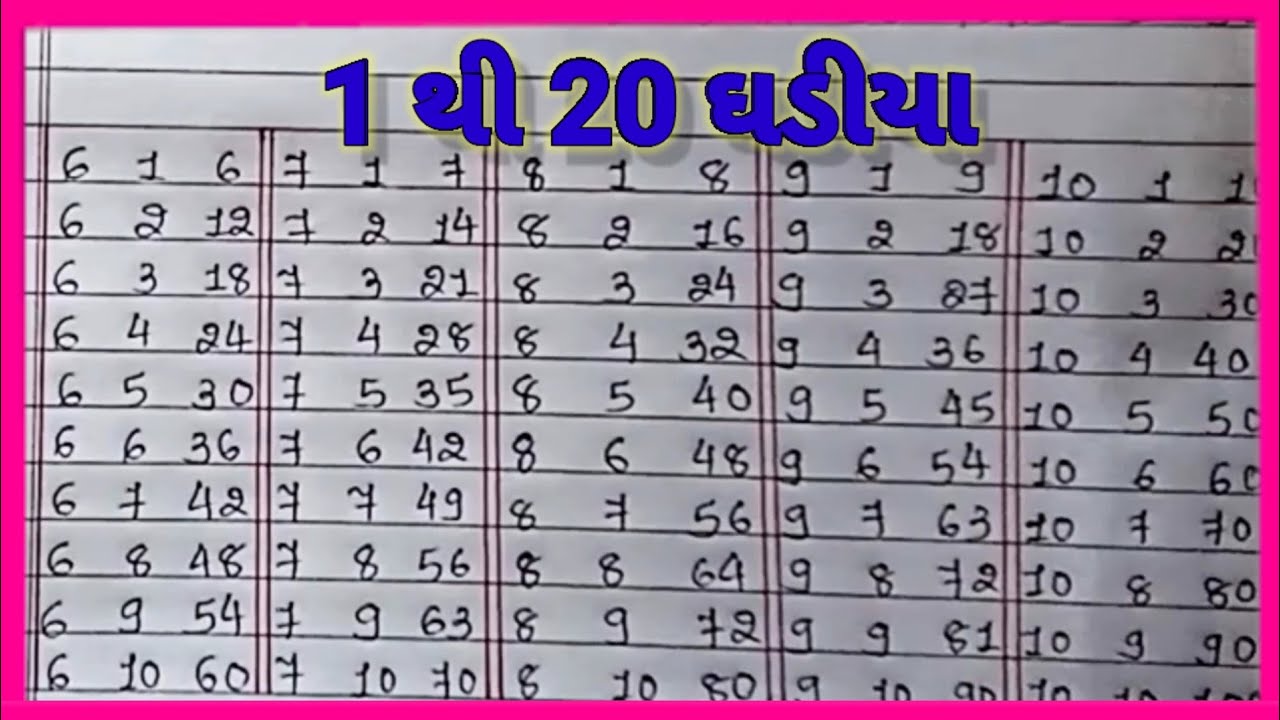 1 થી 20 ઘડીયા
6 1 6 7 1 7 8 1 8 9 1 9 10 1
6 2 12 7 2 14 8 2 16 9 2 18 10 2
6 3 18 7 3 21 8 3 24 9 3 27 10 3 30
6 4 24 7 4 28 8 4 32 9 4 36 10 4 40
6 5 30 7 5 35 8 5 40 9 5 45 10 5 50
6 6 36 7 6 42 8 6 48 9 6 54 10 6 60
6 7 42 7 7 49 8 7 56 9 7 63 10 7 70
6 8 48 7 8 56 8 8 64 9 8 72 10 8 80
6 9 54 7 9 63 8 9 72 9 9 81 10 9 90
6 10 60 7 10 70 8 10 80 9 10 90 10 10